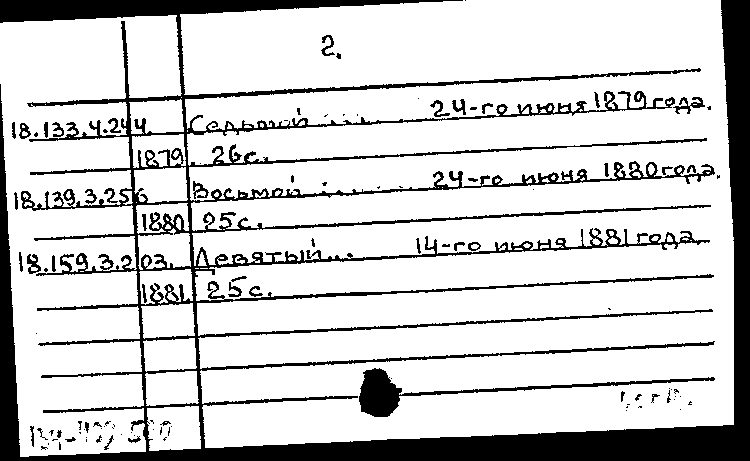 2.
18.133.4.244. Седьмой ... 24-го июня 1879 года.
1879. 26 с.
18.139.3.256 Восьмой ... 24-го июня 1880 года.
1880 25 с.
18.159.3.203. Девятый... 14-го июня 1881 года.
1881. 25 с.